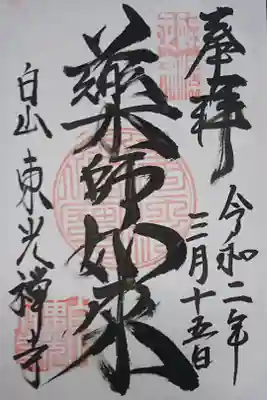 奉拝
令和二年
三月十五日
薬師如来
白山東光禅寺